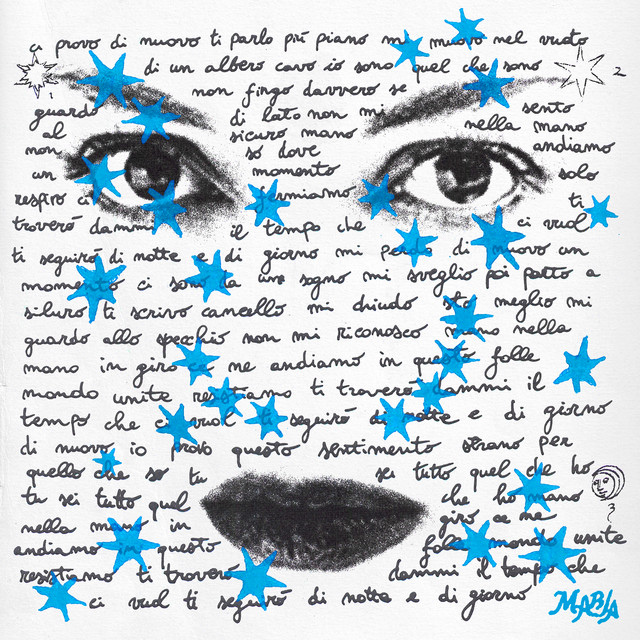 ci provo di nuovo ti parlo più piano mi muovo nel vuoto
di un albero cavo io sono quel che sono
1 non fingo davvero se 2
guardo di lato non mi sento
al sicuro mano nella mano
non so dove andiamo
un momento solo
respiro ci fermiamo ti
troverò dammi il tempo che ci vuol
ti seguirò di notte e di giorno mi perdo di nuovo un
momento ci sono fa un sogno mi sveglio poi parto a
siluro ti scrivo cancello mi chiudo sto meglio mi
guardo allo specchio non mi riconosco mano nella
mano in giro ce ne andiamo in questo folle
mondo unite resistiamo ti troverò dammi il
tempo che ci vuol ti seguirò di notte e di giorno
di nuovo io provo questo sentimento strano per
quello che so tu sei tutto quel che ho
tu sei tutto quel che ho mano
nella mano in giro ce ne 3
andiamo in questo folle mondo unite
resistiamo ti troverò dammi il tempo che
ci vuol ti seguirò di notte e di giorno
MABLA